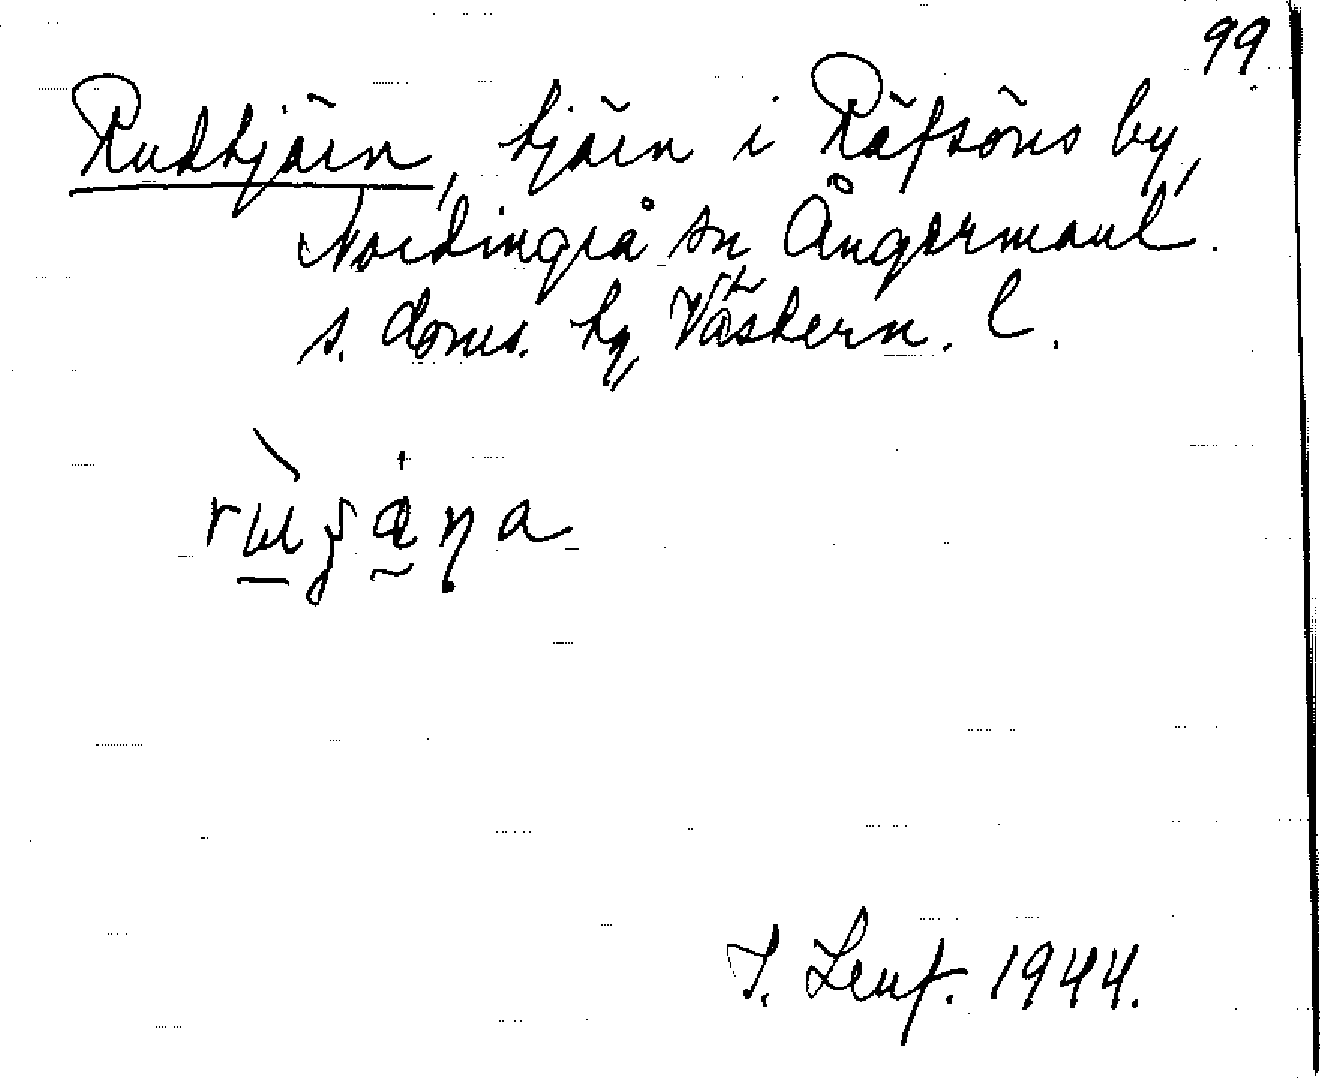 99.
Rudtjärn, tjärn i Räfsöns by,
Nordingrå sn Ångermanl.
s. doms. hg, Västern. l.
T. Lenf. 1944.